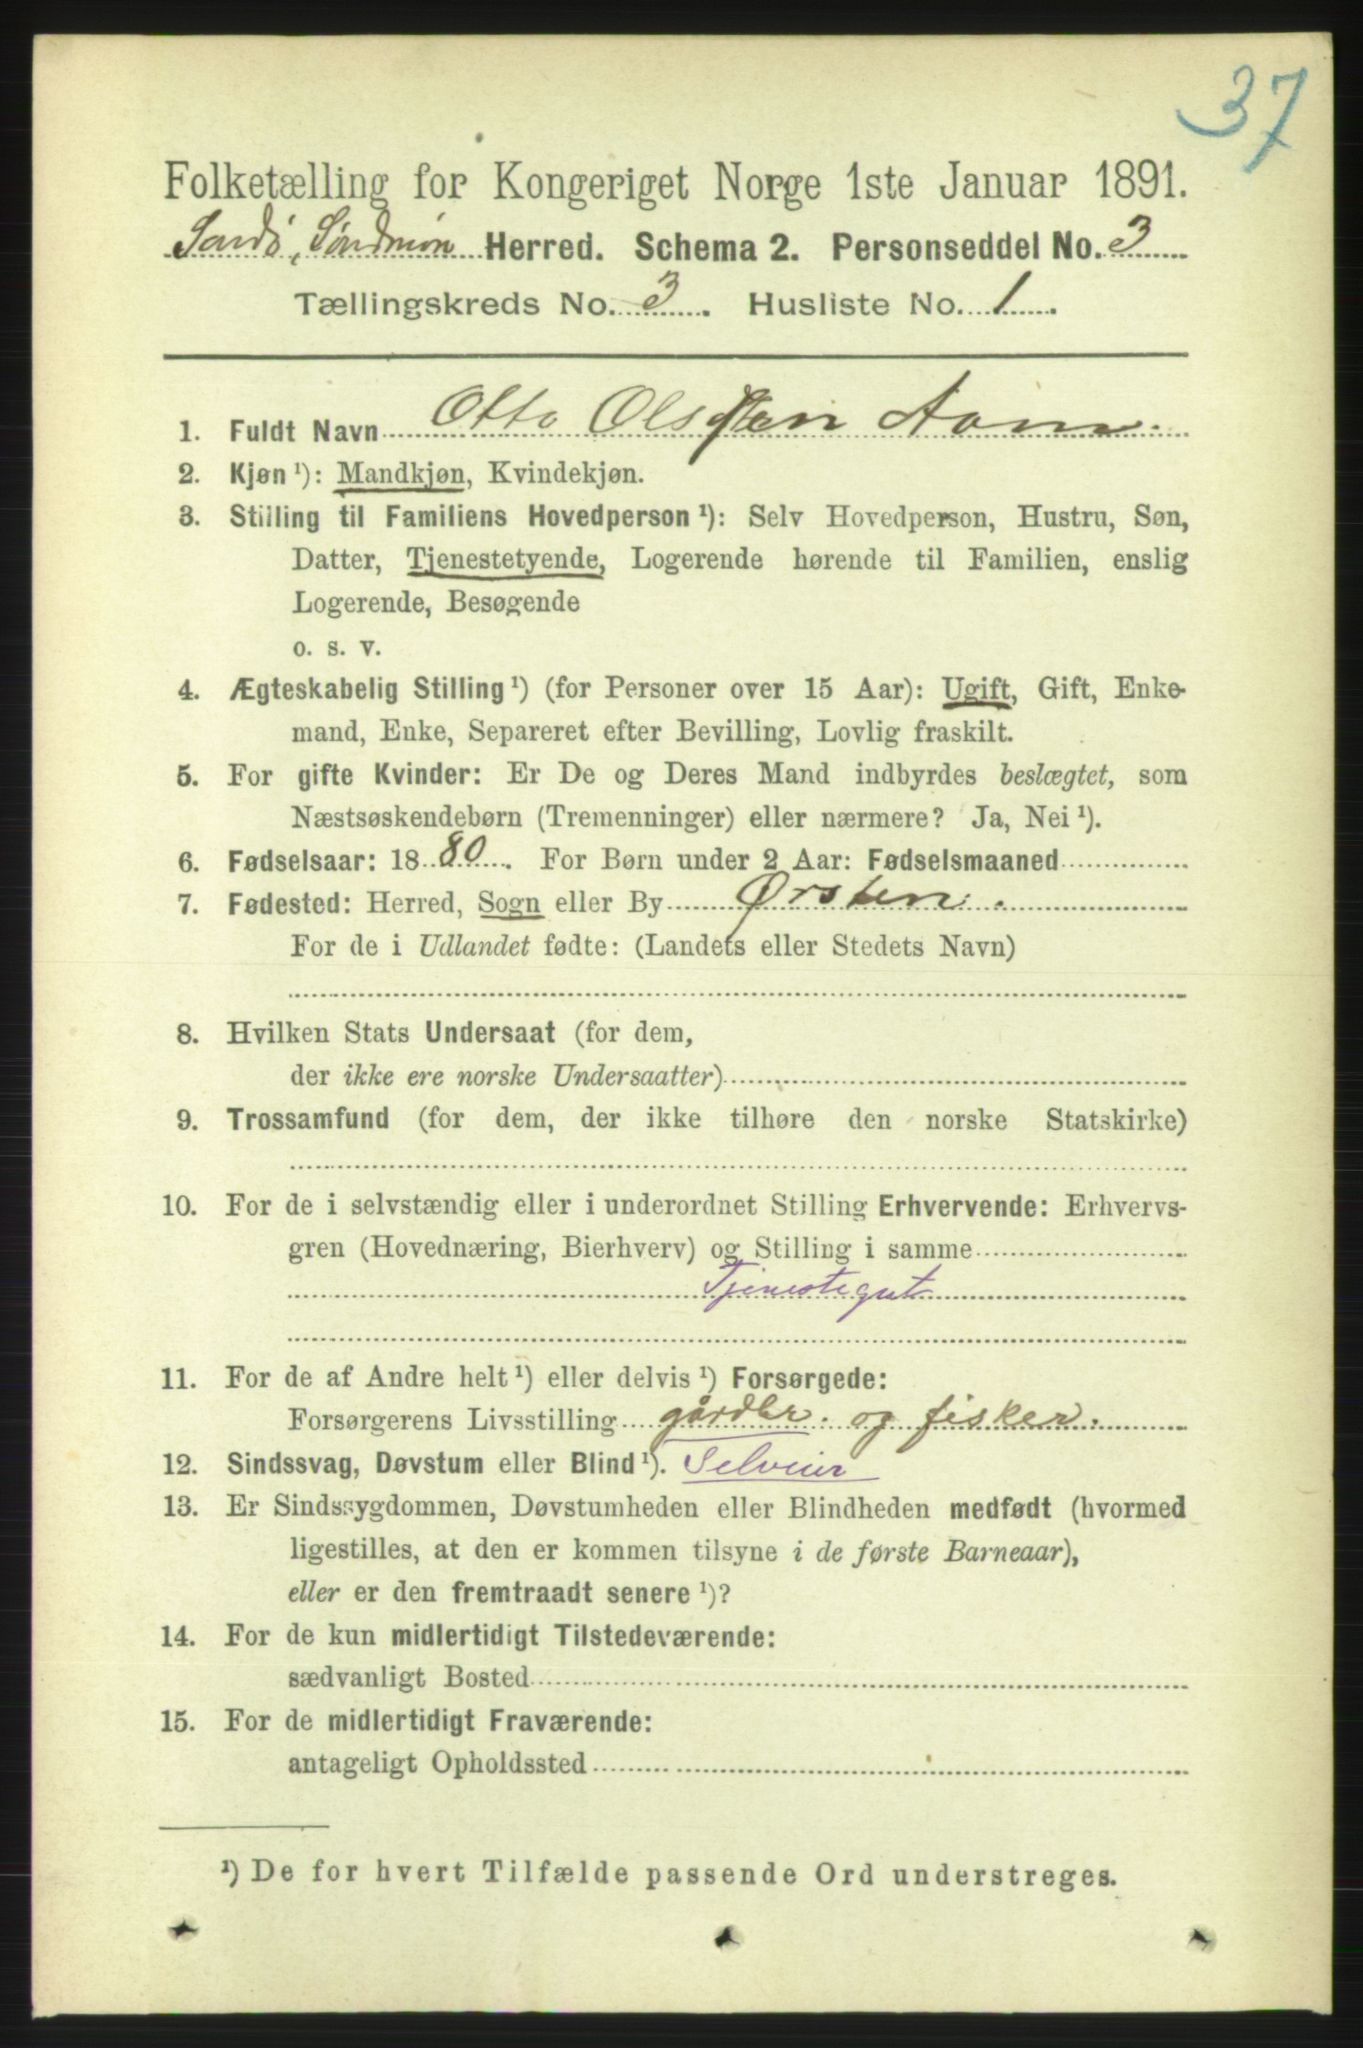 37
Folketælling for Kongeriget Norge 1ste Januar 1891.
Sandø, Søndmør Herred. Schema 2. Personseddel No. 3
Tællingskreds No. 3. Husliste No. 1.
1. Fuldt Navn Otto Olsen Aam.
2. Kjøn ¹): Mandkjøn, Kvindekjøn.
3. Stilling til Familiens Hovedperson ¹): Selv Hovedperson, Hustru, Søn,
Datter, Tjenestetyende, Logerende hørende til Familien, enslig
Logerende, Besøgende
o. s. v.
4. Ægteskabelig Stilling ¹) (for Personer over 15 Aar): Ugift, Gift, Enke-
mand, Enke, Separeret efter Bevilling, Lovlig fraskilt.
5. For gifte Kvinder: Er De og Deres Mand indbyrdes beslægtet, som
Næstsøskendebørn (Tremenninger) eller nærmere? Ja, Nei ¹).
6. Fødselsaar: 1880. For Børn under 2 Aar: Fødselsmaaned
7. Fødested: Herred, Sogn eller By Ørsten.
For de i Udlandet fødte: (Landets eller Stedets Navn)
8. Hvilken Stats Undersaat (for dem,
der ikke ere norske Undersaatter)
9. Trossamfund (for dem, der ikke tilhøre den norske Statskirke)
10. For de i selvstændig eller i underordnet Stilling Erhvervende: Erhvervs-
gren (Hovednæring, Bierhverv) og Stilling i samme
Tjenestegut
11. For de af Andre helt ¹) eller delvis ¹) Forsørgede:
Forsørgerens Livsstilling gårdbr. og fisker.
12. Sindssvag, Døvstum eller Blind ¹). Selveier
13. Er Sindssygdommen, Døvstumheden eller Blindheden medfødt (hvormed
ligestilles, at den er kommen tilsyne i de første Barneaar),
eller er den fremtraadt senere ¹)?
14. For de kun midlertidigt Tilstedeværende:
sædvanligt Bosted
15. For de midlertidigt Fraværende:
antageligt Opholdssted
¹) De for hvert Tilfælde passende Ord understreges.